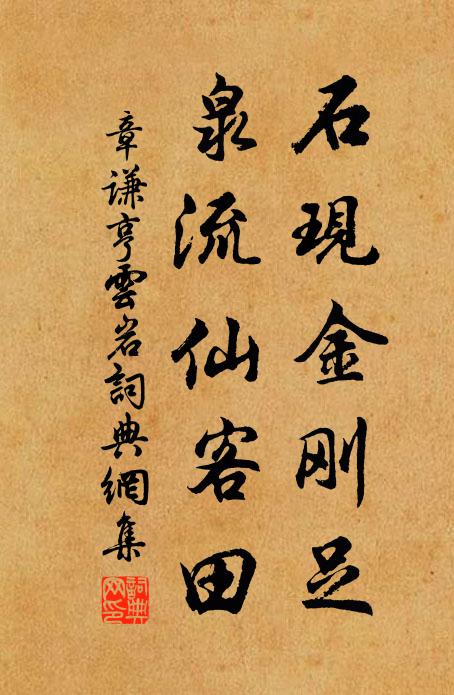 石現金刚足
泉流仙客田
章谦亨雲岩詞典網集
詞典网印